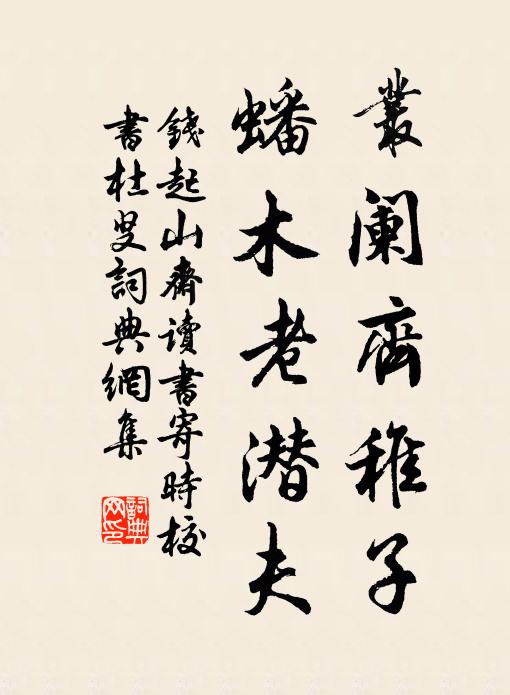 叢阑齊稚子
蟠木老潜夫
錢起山齋讀書寄時校
書杜叟詞典網集
詞典网印